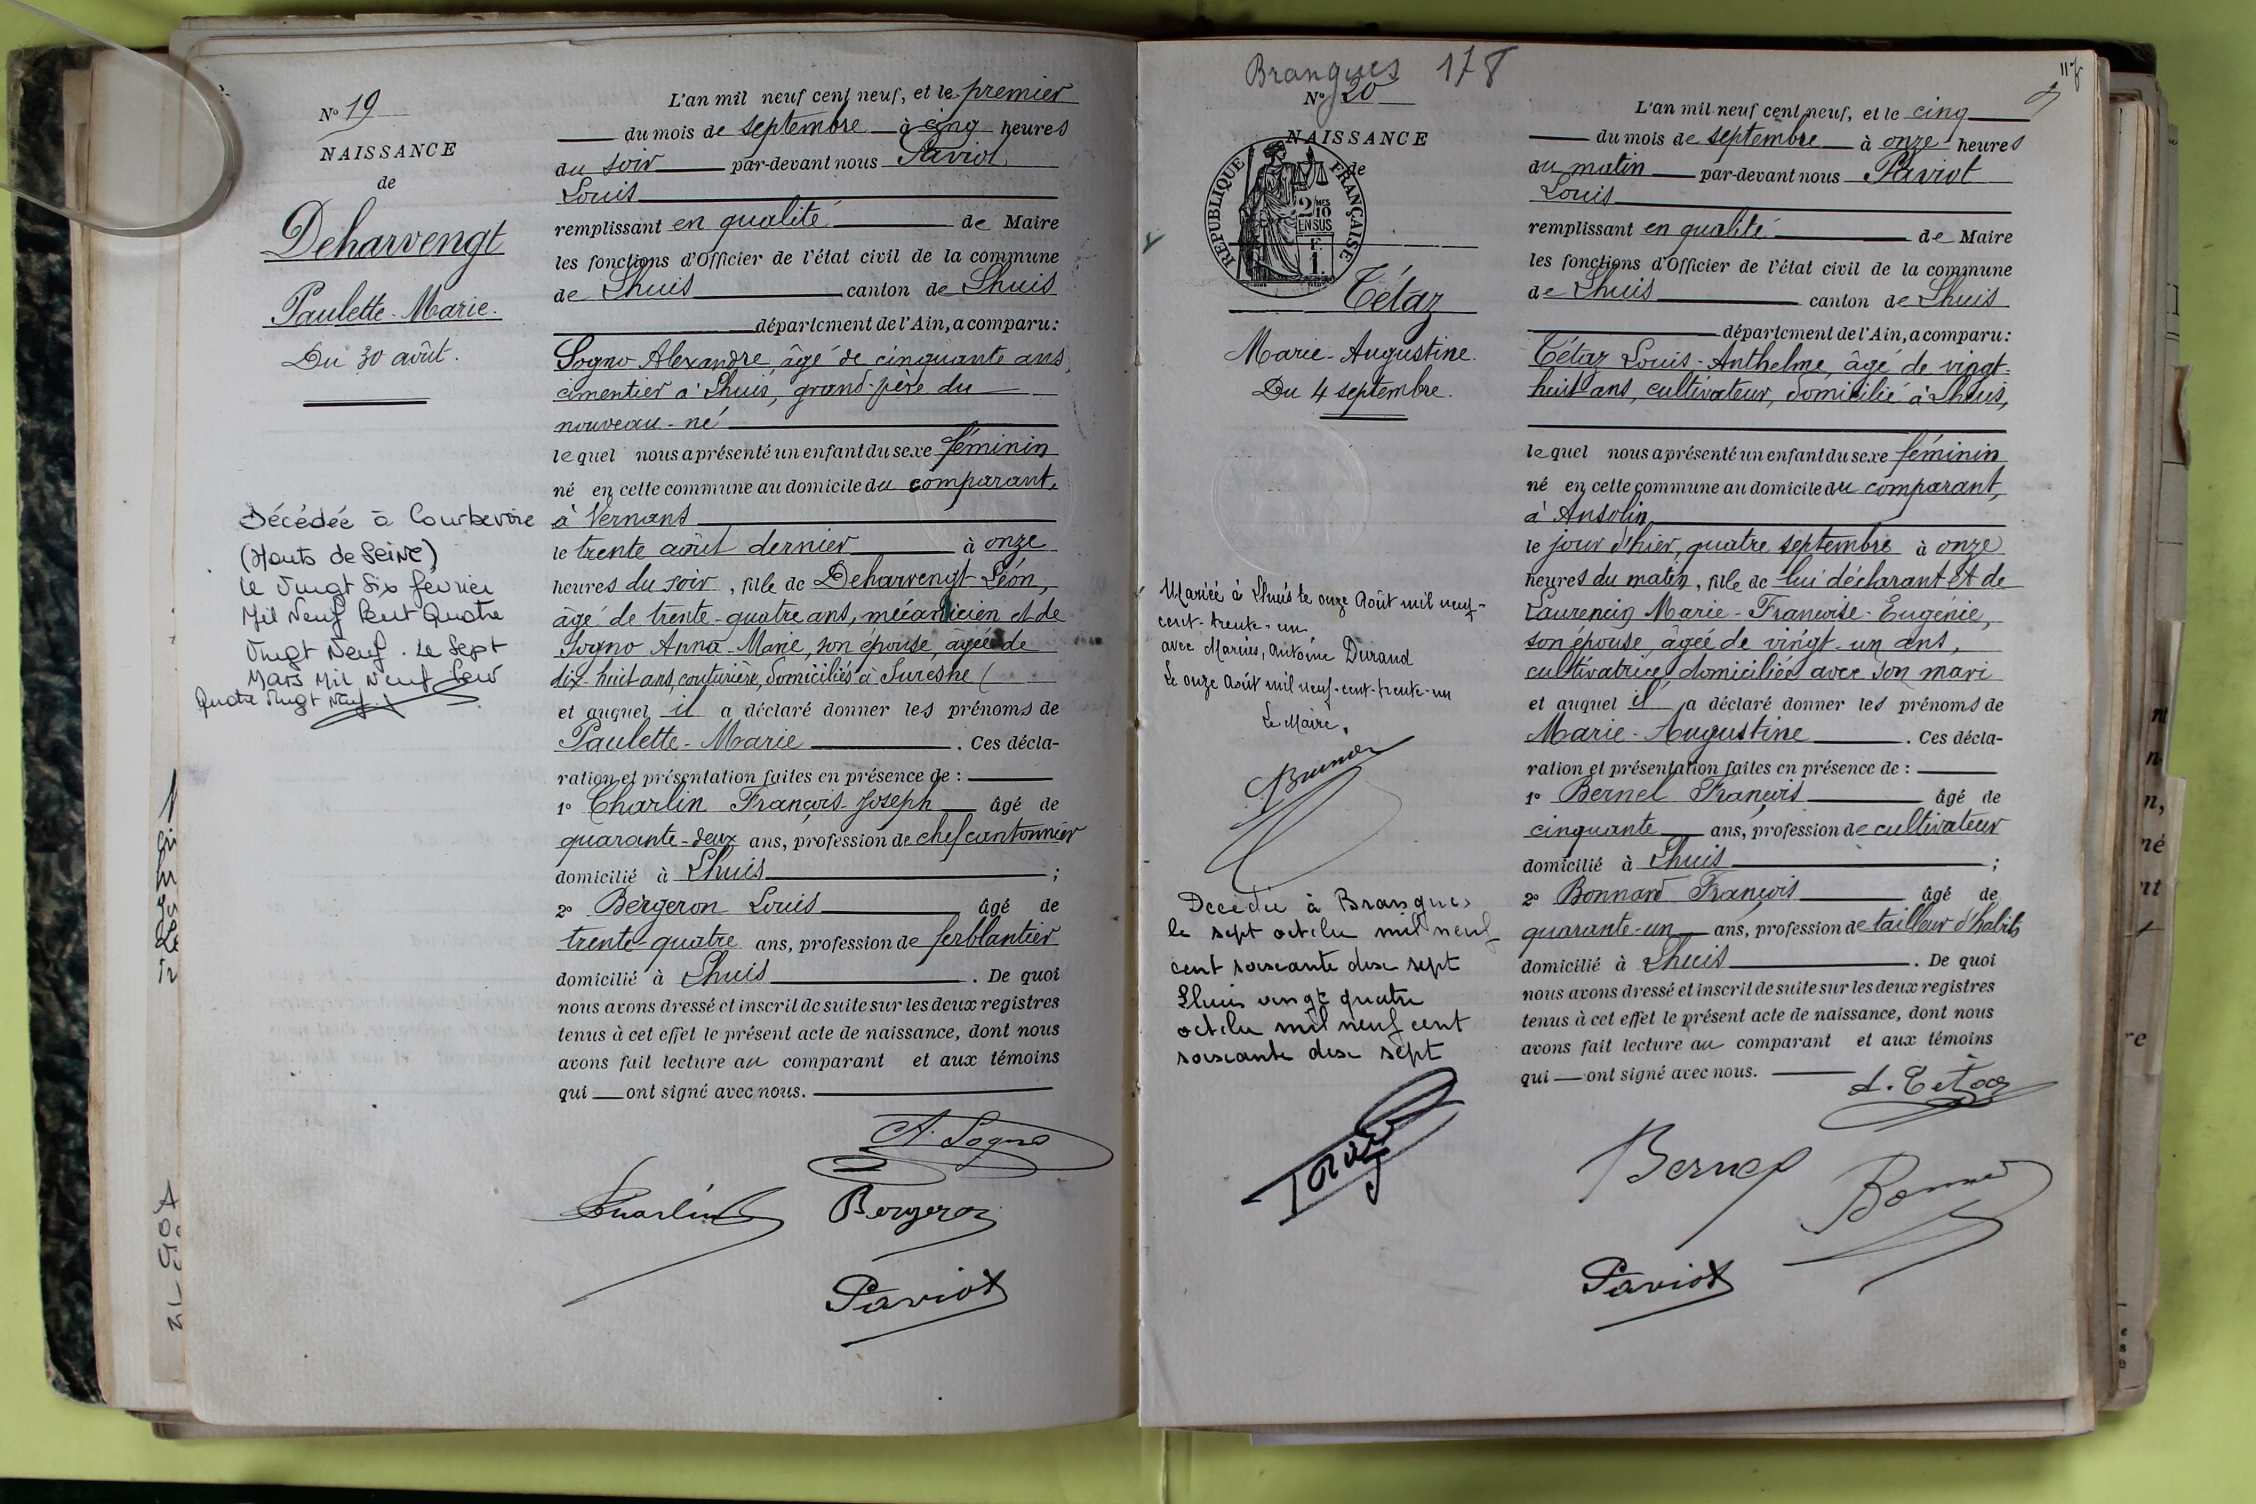 Nº 19
NAISSANCE
de
Deharvengt
Paulette-Marie.
Du 30 août.
Décédée à Courbevoie
(Hauts de Seine)
le Vingt Six février
Mil Neuf Cent Quatre
Vingt Neuf. Le Sept
Mars Mil Neuf Cent
Quatre Vingt Neuf.
L'an mil neuf cent neuf, et le premier
du mois de septembre à cinq heures
du soir par-devant nous Paviot
Louis
remplissant en qualité de Maire
les fonctions d'Officier de l'état civil de la commune
de Lhuis canton de Lhuis
département de l'Ain, a comparu:
Sogno Alexandre âgé de cinquante ans,
cimentier à Lhuis, grand-père du
nouveau-né
lequel nous a présenté un enfant du sexe féminin
né en cette commune au domicile du comparant,
à Vernans
le trente août dernier à onze
heures du soir, fille de Deharvengt Léon,
âgé de trente-quatre ans, mécanicien et de
Sogno Anna-Marie, son épouse, âgée de
dix-huit ans, couturière, domiciliés à Suresne
et auquel il a déclaré donner les prénoms de
Paulette-Marie. Ces décla-
ration et présentation faites en présence de :
1º Charlin François-Joseph âgé de
quarante-deux ans, profession de chef cantonnier
domicilié à Lhuis ;
2º Bergeron Louis âgé de
trente-quatre ans, profession de ferblantier
domicilié à Lhuis. De quoi
nous avons dressé et inscrit de suite sur les deux registres
tenus à cet effet le présent acte de naissance, dont nous
avons fait lecture au comparant et aux témoins
qui ont signé avec nous.
A. Sogno
Charlin Bergeron
Paviot
Brangues 178
Nº 20
NAISSANCE
de
RÉPUBLIQUE FRANÇAISE
2/10 MES
EN SUS
Tétaz
Marie-Augustine.
Du 4 septembre.
Mariée à Lhuis le onze Août mil neuf-
cent-trente-un
avec Marius, Antoine Durand
Le onze Août mil neuf-cent-trente-un
Le Maire,
Décédée à Brangues
le sept octobre mil neuf
cent soixante dix sept
Lhuis vingt quatre
octobre mil neuf cent
soixante dix sept
L'an mil neuf cent neuf, et le cinq
du mois de septembre à onze heures
du matin par-devant nous Paviot
Louis
remplissant en qualité de Maire
les fonctions d'Officier de l'état civil de la commune
de Lhuis canton de Lhuis
département de l'Ain, a comparu:
Tétaz Louis-Anthelme, âgé de vingt-
huit ans, cultivateur, domicilié à Lhuis,
lequel nous a présenté un enfant du sexe féminin
né en cette commune au domicile du comparant,
à Ansolin
le jour d'hier, quatre septembre à onze
heures du matin, fille de lui déclarant et de
Laurencin Marie-Françoise-Eugénie,
son épouse âgée de vingt-un ans,
cultivatrice, domiciliée avec son mari
et auquel il a déclaré donner les prénoms de
Marie-Augustine. Ces décla-
ration et présentation faites en présence de :
1º Bernel François âgé de
cinquante ans, profession de cultivateur
domicilié à Lhuis ;
2º Bonnard François âgé de
quarante-un ans, profession de tailleur d'habits
domicilié à Lhuis. De quoi
nous avons dressé et inscrit de suite sur les deux registres
tenus à cet effet le présent acte de naissance, dont nous
avons fait lecture au comparant et aux témoins
qui ont signé avec nous.
L. Tétaz
Bernel
Paviot